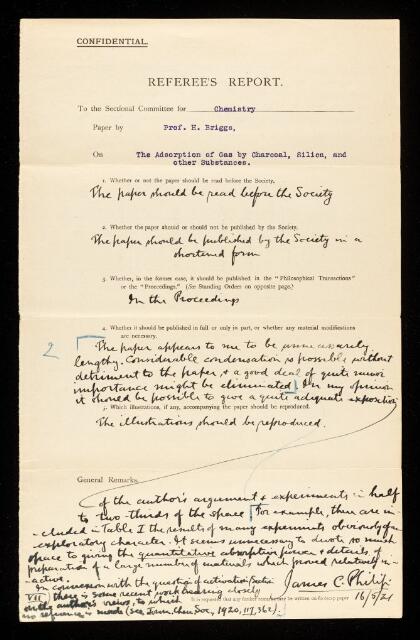 CONFIDENTIAL.
REFEREE'S REPORT.
To the Sectional Committee for Chemistry
Paper by Prof. H. Briggs,
On The Adsorption of Gas by Charcoal, Silica, and
other Substances.
1. Whether or not the paper should be read before the Society.
The paper should be read before the Society
2. Whether the paper should or should not be published by the Society.
The paper should be published by the Society in a
shortened form
3. Whether, in the former case, it should be published in the "Philosophical Transactions"
or the "Proceedings." (See Standing Orders on opposite page.)
In the Proceedings
4. Whether it should be published in full or only in part, or whether any material modifications
are necessary.
2
The paper appears to me to be unnecessarily
lengthy. Considerable condensation is possible without
detriment to the paper, & a good deal of quite minor
importance might be eliminated. In my opinion
it should be possible to give a quite adequate exposition
5. Which illustrations, if any, accompanying the paper should be reproduced.
The illustrations should be reproduced.
General Remarks.
of the author's argument & experiments in half
to two-thirds of the space. For example, there are in-
cluded in Table I the results of many experiments obviously of an
exploratory character. It seems unnecessary to devote so much
space to giving the quantitative absorptive power & details of
preparation of a large number of materials which proved relatively in-
active.
In connexion with the question of activation (Section
VII) there is some recent work bearing closely
on the author's views, to which
no reference is made (see Journ. Chem. Soc., 1920, 117, 362).
James C. Philip
It is requested that any further remarks may be written on foolscap paper
16/5/21